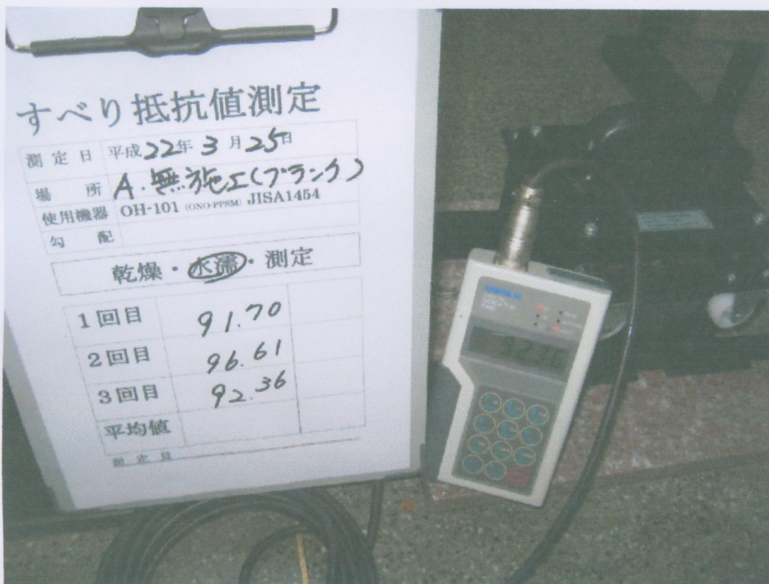 すべり抵抗値測定
測定日 平成22年3月25日
場所 A.無施工(ブランク)
使用機器 OH-101 (ONO・PPSM) JISA1454
勾配
乾燥・水濡・測定
1回目 91.70
2回目 96.61
3回目 92.36
平均値
測定員
92.36